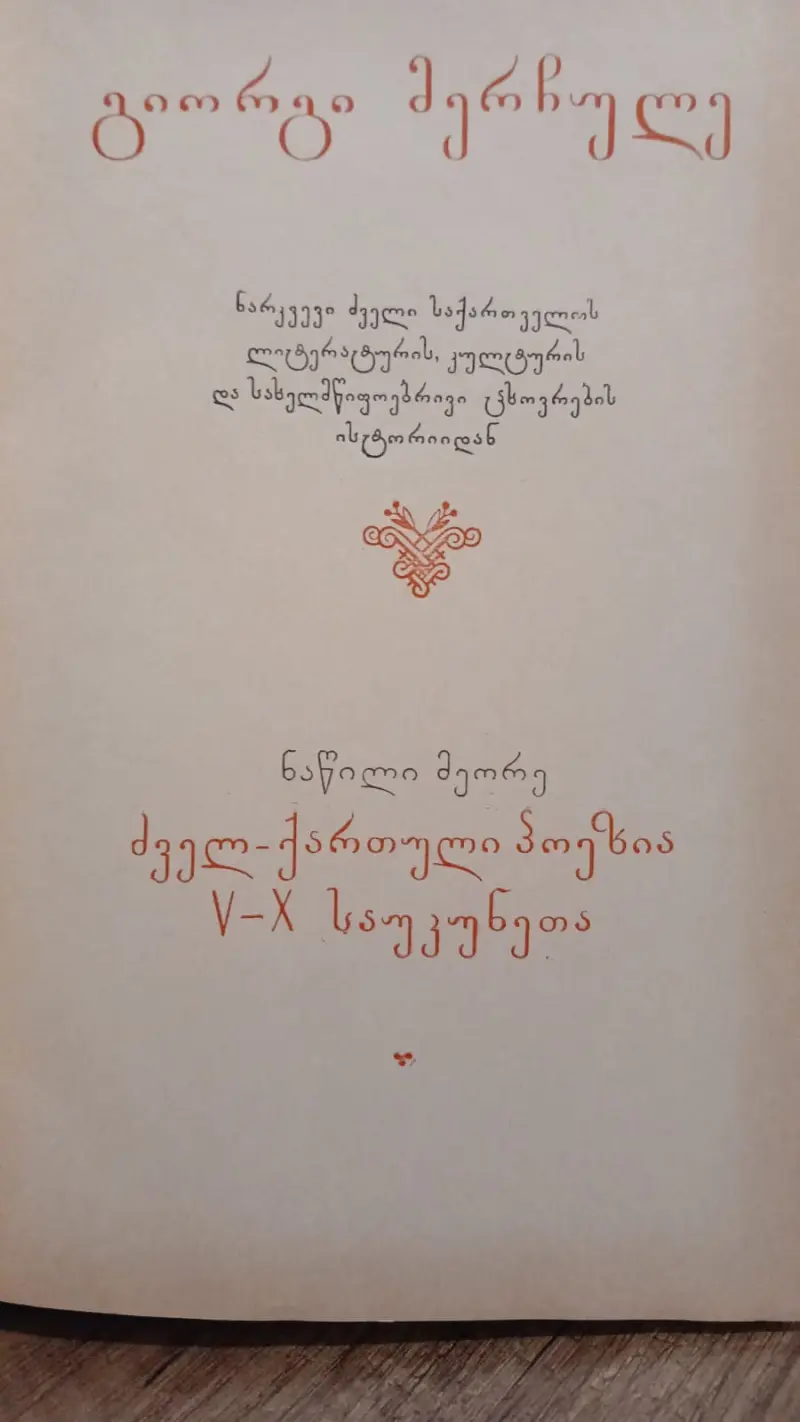 გიორგი მერჩულე
ნარკვევი ძველი საქართველოს
ლიტერატურის, კულტურის
და სახელმწიფოებრივი ცხოვრების
ისტორიიდან
ნაწილი მეორე
ძველ-ქართული პოეზია
V-X საუკუნეთა